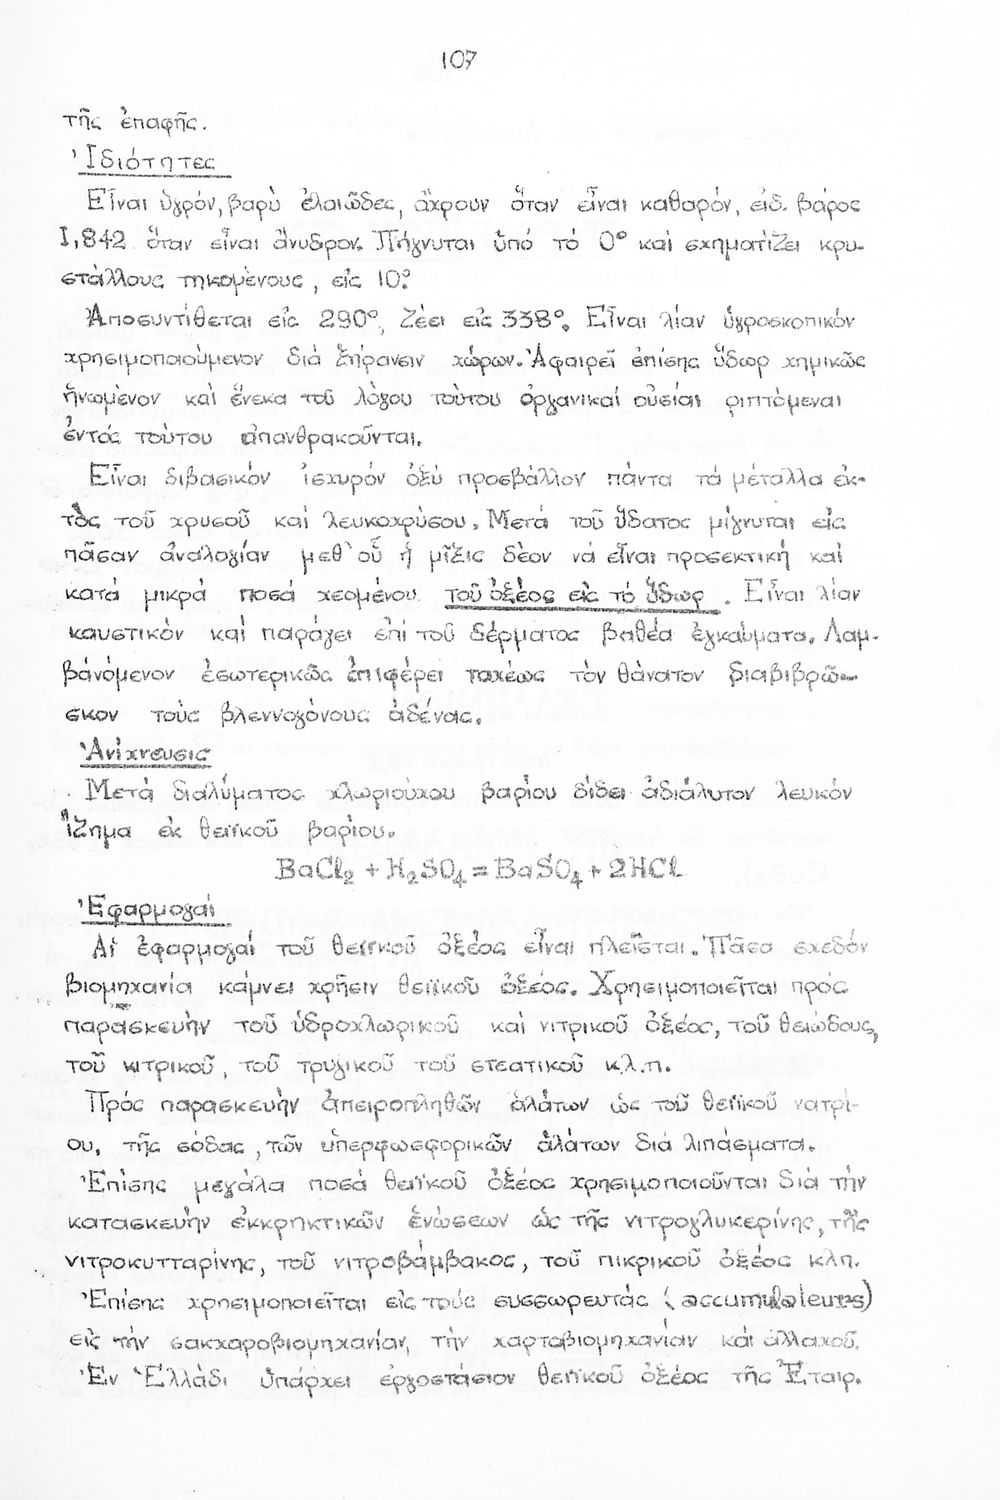 107
τῆς ἐπαφῆς.
Ἰδιότητες
Εἶναι ὑγρόν, βαρὺ ἐλαιῶδες, ἄχρουν ὅταν εἶναι καθαρόν, εἰδ. βάρος
1,842 ὅταν εἶναι ἄνυδρον. Πήγνυται ὑπό τό 0° καί σχηματίζει κρυ-
στάλλους τηκομένους, εἰς 10°.
Ἀποσυντίθεται εἰς 290°, ζέει εἰς 338°. Εἶναι λίαν ὑγροσκοπικόν
χρησιμοποιούμενον διά ξήρανσιν χώρων. Ἀφαιρεῖ ἐπίσης ὕδωρ χημικῶς
ἡνωμένον καί ἕνεκα τοῦ λόγου τούτου ὀργανικαί οὐσίαι ριπτόμεναι
ἐντός τούτου ἀπανθρακοῦνται.
Εἶναι διβασικόν ἰσχυρόν ὀξύ προσβάλλον πάντα τά μέταλλα ἐκ-
τός τοῦ χρυσοῦ καί λευκοχρύσου. Μετά τοῦ ὕδατος μίγνυται εἰς
πᾶσαν ἀναλογίαν μεθ' οὗ ἡ μῖξις δέον νά εἶναι προσεκτική καί
κατά μικρά ποσά χεομένου τοῦ ὀξέος εἰς τό ὕδωρ. Εἶναι λίαν
καυστικόν καί παράγει ἐπί τοῦ δέρματος βαθέα ἐγκαύματα. Λαμ-
βάνόμενον ἐσωτερικῶς ἐπιφέρει ταχέως τόν θάνατον διαβιβρῶ-
σκον τούς βλεννογόνους ἀδένας.
Ἀνίχνευσις
Μετά διαλύματος χλωριούχου βαρίου δίδει ἀδιάλυτον λευκόν
ἵζημα ἐκ θειϊκοῦ βαρίου.
BaCl₂ + H₂SO₄ = BaSO₄ + 2HCl
Ἐφαρμογαί
Αἱ ἐφαρμογαί τοῦ θειϊκοῦ ὀξέος εἶναι πλεῖσται. Πᾶσα σχεδόν
βιομηχανία κάμνει χρῆσιν θειϊκοῦ ὀξέος. Χρησιμοποιεῖται πρός
παρασκευήν τοῦ ὑδροχλωρικοῦ καί νιτρικοῦ ὀξέος, τοῦ θειώδους,
τοῦ κιτρικοῦ, τοῦ τρυγικοῦ τοῦ στεατικοῦ κ.λ.π.
Πρός παρασκευήν ἀπειροπληθῶν ἁλάτων ὡς τοῦ θειϊκοῦ νατρί-
ου, τῆς σόδας, τῶν ὑπερφωσφορικῶν ἁλάτων διά λιπάσματα.
Ἐπίσης μεγάλα ποσά θειϊκοῦ ὀξέος χρησιμοποιοῦνται διά τήν
κατασκευήν ἐκκρηκτικῶν ἑνώσεων ὡς τῆς νιτρογλυκερίνης, τῆς
νιτροκυτταρίνης, τοῦ νιτροβάμβακος, τοῦ πικρικοῦ ὀξέος κλπ.
Ἐπίσης χρησιμοποιεῖται εἰς τούς συσσωρευτάς (accumulaleurs)
εἰς τήν σακχαροβιομηχανίαν, τήν χαρτοβιομηχανίαν καί ἀλλαχοῦ.
Ἐν Ἑλλάδι ὑπάρχει ἐργοστάσιον θειϊκοῦ ὀξέος τῆς Ἑταιρ.